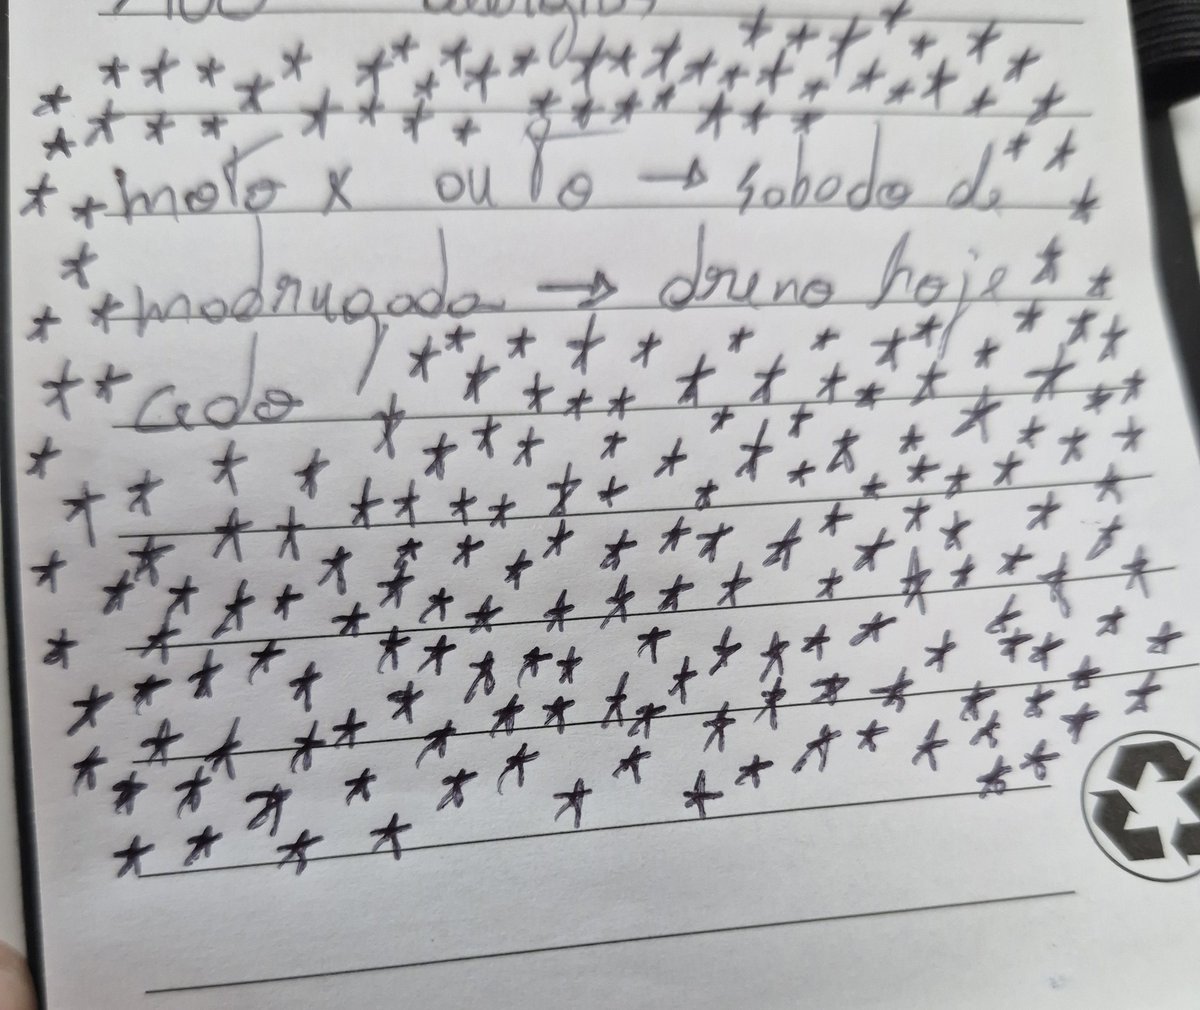 moto x ou to → sabado de
madrugada → dreno hoje
cedo